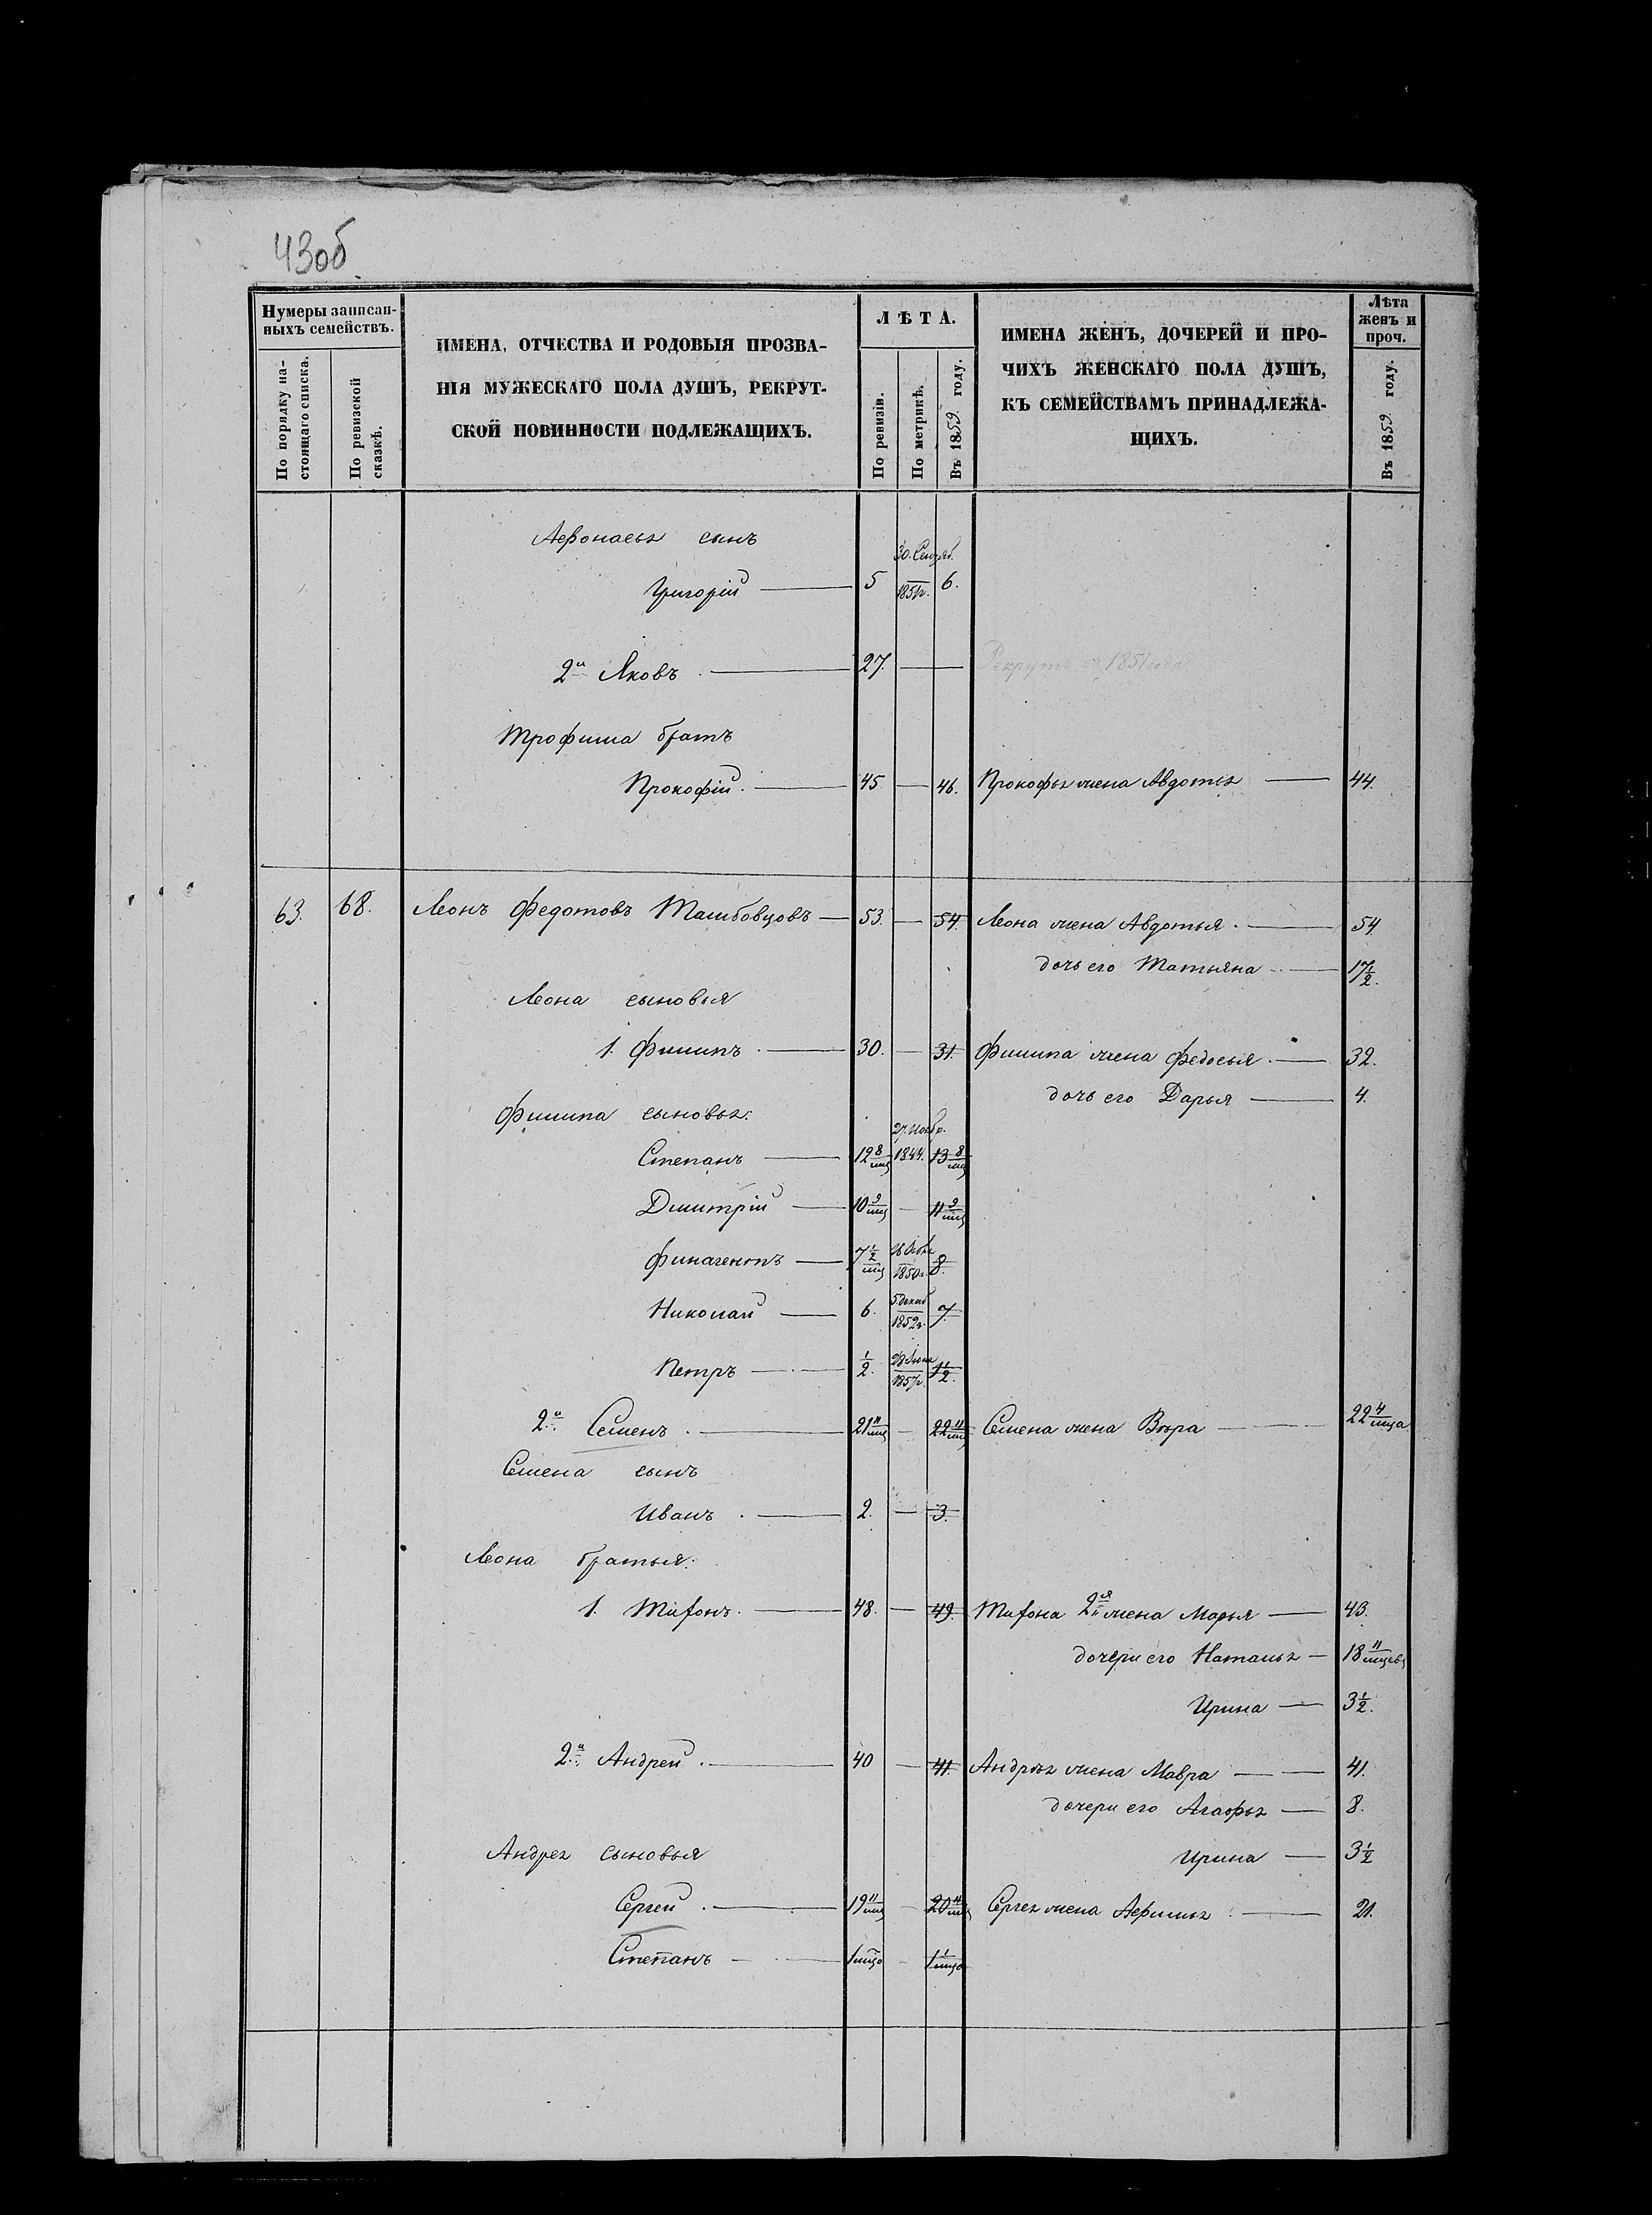 43об
Нумеры записан-
ныхъ семействъ.
По порядку на-
стоящаго списка.
По ревизской
сказкѣ.
ИМЕНА, ОТЧЕСТВА И РОДОВЫЯ ПРОЗВА-
НІЯ МУЖЕСКАГО ПОЛА ДУШЪ, РЕКРУТ-
СКОЙ ПОВИННОСТИ ПОДЛЕЖАЩИХЪ.
ЛѢТА.
По ревизіи.
По метрикѣ.
Въ 1859 году.
ИМЕНА ЖЕНЪ, ДОЧЕРЕЙ И ПРО-
ЧИХЪ ЖЕНСКАГО ПОЛА ДУШЪ,
КЪ СЕМЕЙСТВАМЪ ПРИНАДЛЕЖА-
ЩИХЪ.
Лѣта
женъ и
проч.
Въ 1859 году.
Афонасья сынъ
Григорій — 5 30. Сентяб. 1851г. 6.
2й Яковъ — 27. — Рекрутъ 1851 года
Трофима братъ
Прокофій — 45 — 46. Прокофья жена Авдотья — 44.
63. 68. Леонъ Федотовъ — 53. — 54. Леона жена Авдотья — 54.
дочь его Татьяна — 17 1/2.
Леона сыновья
1. Филипъ — 30. — 31. Филипа жена Федосья — 32.
дочь его Дарья — 4.
Филипа сыновья:
Степанъ — 12 8/мц 27. Ноябр. 1844. 13 8/мц
Дмитрій — 10 9/мц — 11 9/мц
Финагентъ — 7 1/2 мц 1850г. 8.
Николай — 6. 5. декаб 1852г. 7
Петръ — 1/2. 28 1857г. 1 1/2.
2й Семенъ — 21 11/мц — 22 11/мц Семена жена Вѣра — 22 4/мца
Семена сынъ
Иванъ — 2. — 3.
Леона братья:
1. Тифонъ — 48. — 49. Тифона 2я жена Марья — 43.
дочери его Наталья — 18 11/мцевъ
Ирина — 3 1/2.
2й Андрей — 40 — 41. Андрея жена Мавра — 41.
дочери его Агафья — 8.
Андрея сыновья Ирина — 3 1/2
Сергей — 19 11/мц — 20 11/мц Сергея жена Афимья — 21.
Степанъ — 1 мцъ — 1 1/мцъ